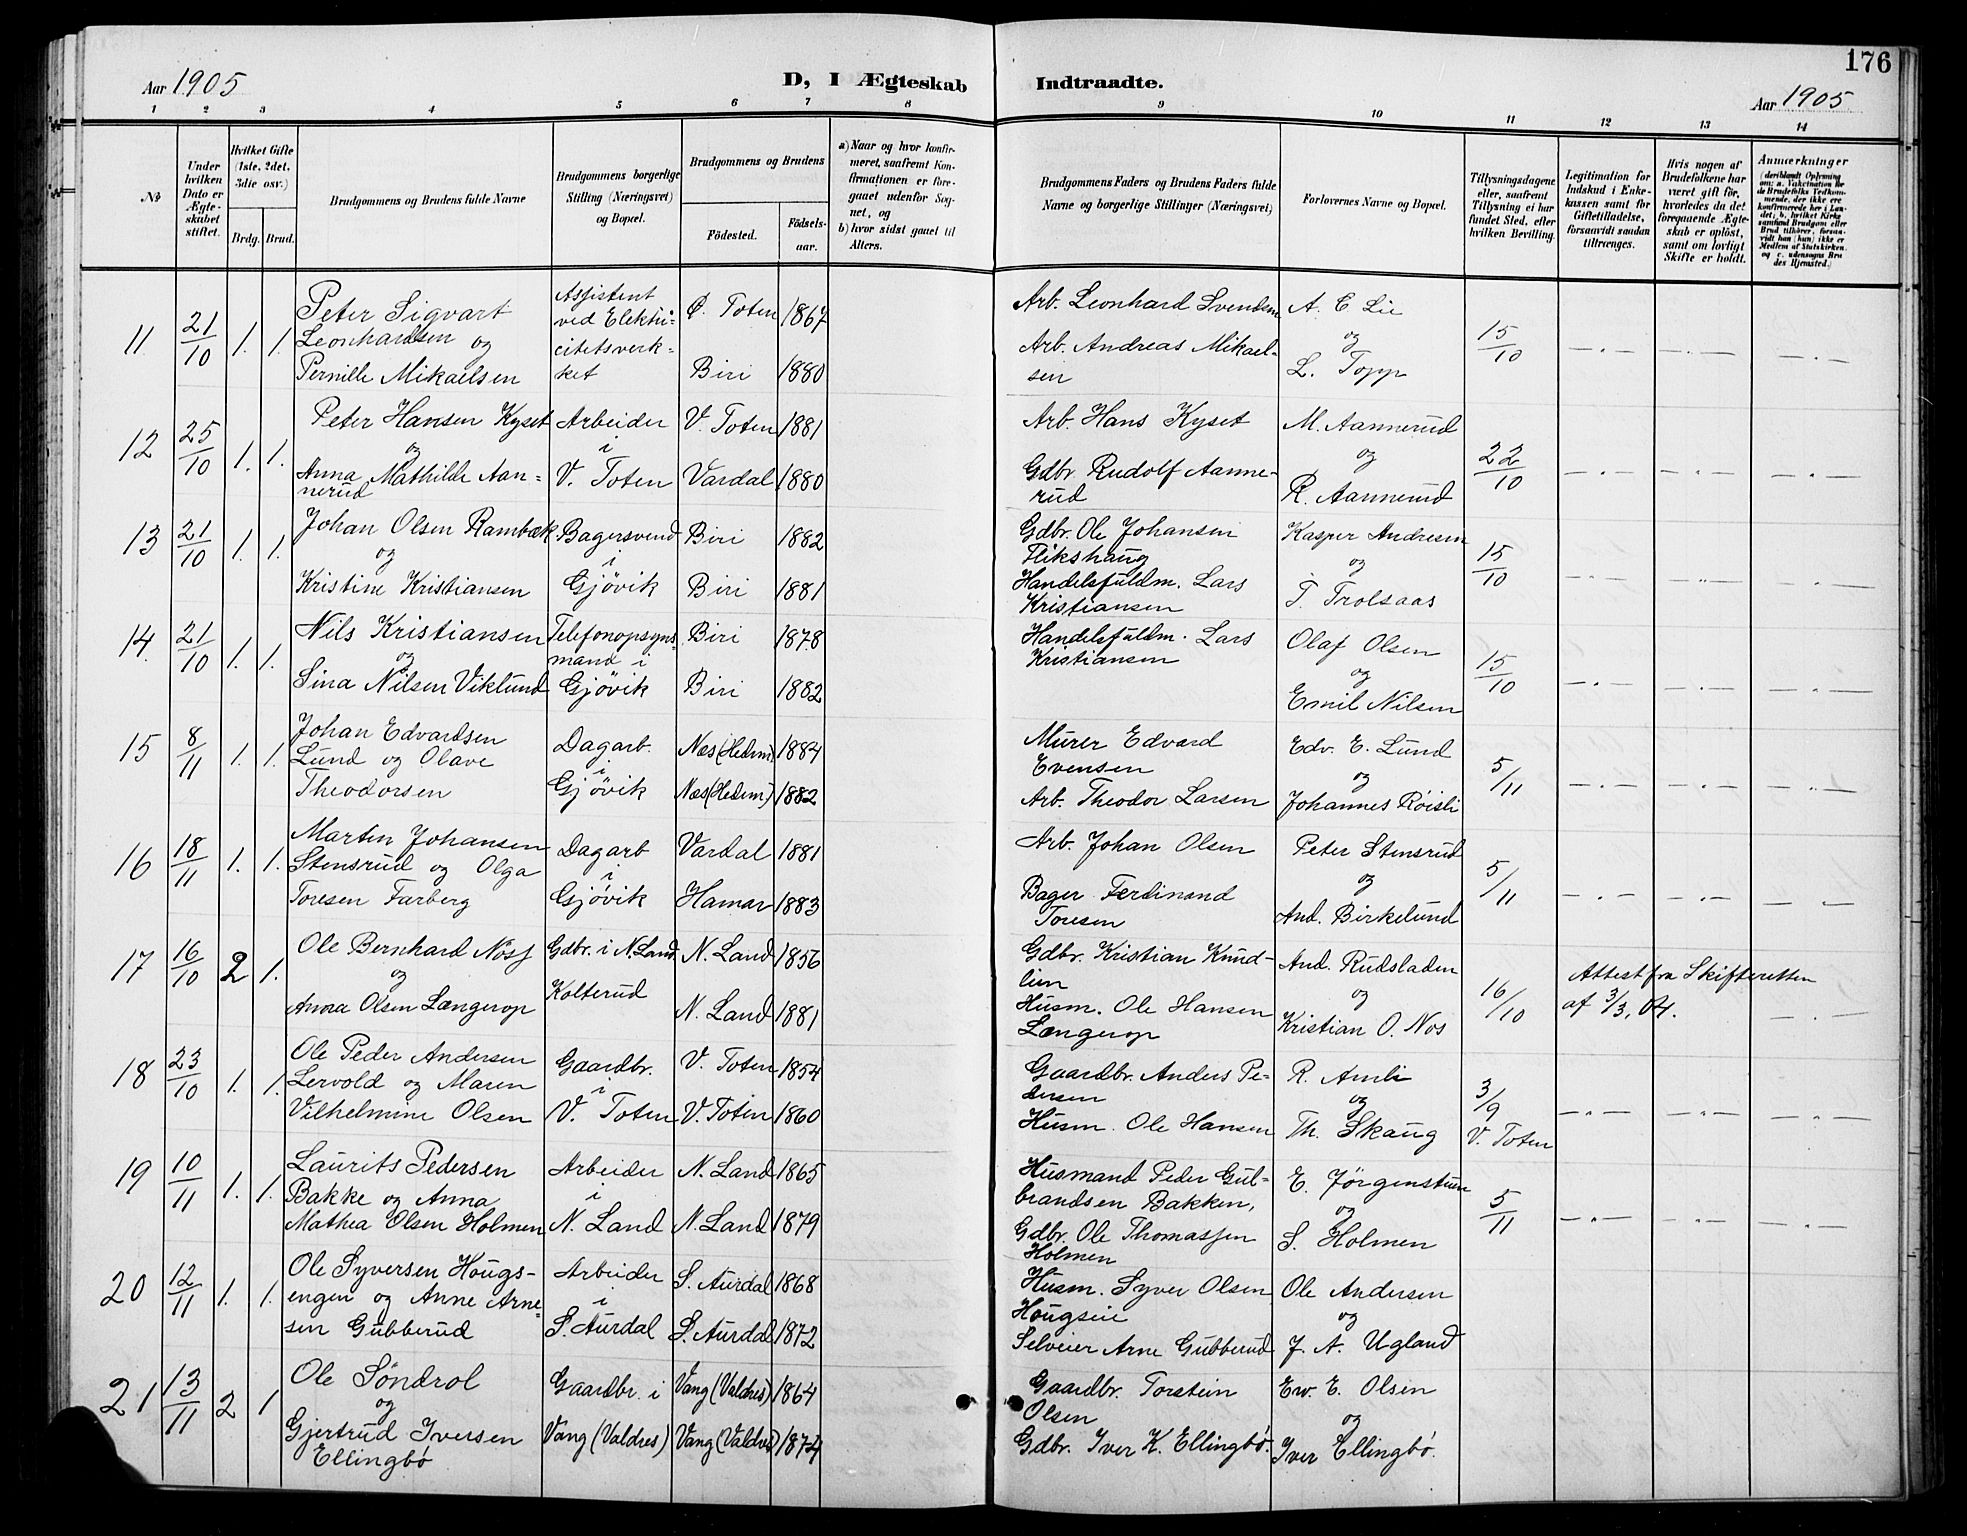 176
Aar 1905
D, I Ægteskab Indtraadte.
Aar 1905
1 2 3 4 5 6 7 8 9 10 11 12 13 14
No
Under hvilken Dato er Ægteskabet stiftet.
Hvilket Gifte (1ste, 2det, 3die osv.)
Brdg. Brud.
Brudgommens og Brudens fulde Navne
Brudgommens borgerlige Stilling (Næringsvei) og Bopæl.
Brudgommens og Brudens
Fødested.
Fødsels-aar.
a) Naar og hvor konfirmeret, saafremt Konfirmationen er foregaaet udenfor Sognet, og
b) hvor sidst gaaet til Alters.
Brudgommens Faders og Brudens Faders fulde Navne og borgerlige Stillinger (Næringsvei)
Forlovernes Navne og Bopæl.
Tillysningsdagene eller, saafremt Tillysning ei har fundet Sted, efter hvilken Bevilling.
Legitimation for Indskud i Enkekassen samt for Giftetilladelse, forsaavidt saadan tiltrænges.
Hvis nogen af Brudefolkene har været gift før, hvorledes da det foregaaende Ægteskab er opløst, samt om lovligt Skifte er holdt.
Anmærkninger (deriblandt Oplysning om: a. Vakcination for de Brudefolks Vedkommende, der ikke ere konfirmerede her i Landet; b. hvilket Kirkesamfund Brudgom eller Brud tilhører, forsaavidt han (hun) ikke er Medlem af Statskirken og c. udensogns Brudes Hjemsted.)
11 21/10 1. 1. Peter Sigvart
Leonhardsen og
Pernille Mikaelsen
Assistent
ved Elektri-
citetsverk-
ket
Ø. Toten 1867
Biri 1880
Arb. Leonhard Svendsen
Arb. Andreas Mikael-
sen
A. C Lie
og
L. Topp
15/10 — " — — " — — " —
12 25/10 1. 1. Peter Hansen Kyset
og
Anna Mathilde Aan-
nerud
Arbeider
i
V. Toten
V. Toten 1881
Vardal 1880
Arb. Hans Kyset
Gdbr Rudolf Aanne-
rud
M. Aannerud
og
R. Aannerud
22/10 — " — — " — — " —
13 21/10 1. 1. Johan Olsen Rambæk
og
Kristine Kristiansen
Bagersvend
i
Gjövik
Biri 1882
Biri 1881
Gdbr. Ole Johansen
Flikshaug
Handelsfuldm. Lars
Kristiansen
Kasper Andresen
og
T. Trolsaas
15/10 — " — — " — — " —
14. 21/10 1. 1. Nils Kristiansen
og
Sina Nilsen Viklund
Telefonopsyns
mand i
Gjövik
Biri 1878
Biri 1882
Handelsfuldm. Lars
Kristiansen
Olaf Olsen
og
Emil Nilsen
15/10 — " — — " — — " —
15 8/11 1. 1. Johan Edvardsen
Lund og Olave
Theodorsen
Dagarb.
i
Gjövik
Næs (Hedm) 1884
Næs (Hedm) 1882
Murer Edvard
Evensen
Arb. Theodor Larsen
Edv. E. Lund
og
Johannes Röisli
5/11 — " — — " — — " —
16 18/11 1. 1. Martin Johansen
Stensrud og Olga
Toresen Farberg
Dagarb
i
Gjövik
Vardal 1881
Hamar 1883
Arb. Johan Olsen
Bager Ferdinand
Toresen
Peter Stensrud
og
And. Birkelund
5/11 — " — — " — — " —
17 16/10 2 1. Ole Bernhard
og
Anna Olsen Længerop
Gdbr. i N. Land
Kolterud
N. Land 1856
N. Land 1881
Gdbr. Kristian Knud-
lien
Husm. Ole Hansen
Længerop
And. Rudsladen
og
Kristian O. Nos
16/10
Attest fra Skifteretten
af 3/3, 04. — " —
18 23/10 1. 1. Ole Peder Andersen
Lervold og Maren
Vilhelmine Olsen
Gaardbr.
i
V. Toten
V. Toten 1854
V. Toten 1860
Gaardbr. Anders Pe-
dersen
Husm. Ole Hansen
R. Amli
og
Th. Skaug
3/9
V. Toten — " — — " — — " —
19 10/11 1. 1. Laurits Pedersen
Bakke og Anna
Mathea Olsen Holmen
Arbeider
i
N. Land
N. Land 1865
N. Land 1879
Husmand Peder Gul-
brandsen Bakken,
Gdbr. Ole Thomassen
Holmen
E. Jörgenstuen
og
S. Holmen
5/11 — " — — " — — " —
20 12/11 1. 1. Ole Syversen Hougs-
engen og Anne Arne-
sen Gubberud
Arbeider
i
S. Aurdal
S. Aurdal 1868
S. Aurdal 1872
Husm. Syver Olsen
Hougseie
Selveier Arne Gubberud
Ole Andersen
og
J. A. Ugland
21 13/11 2 1 Ole Söndrol
og
Gjertrud Iversen
Ellingbö
Gaardbr. i
Vang (Valdres)
Vang (Valdres) 1864
Vang (Valdres) 1874
Gaardbr. Torstein
Olsen
Gdbr. Iver K. Ellingbö.
Ew. E. Olsen
og
Iver Ellingbö.